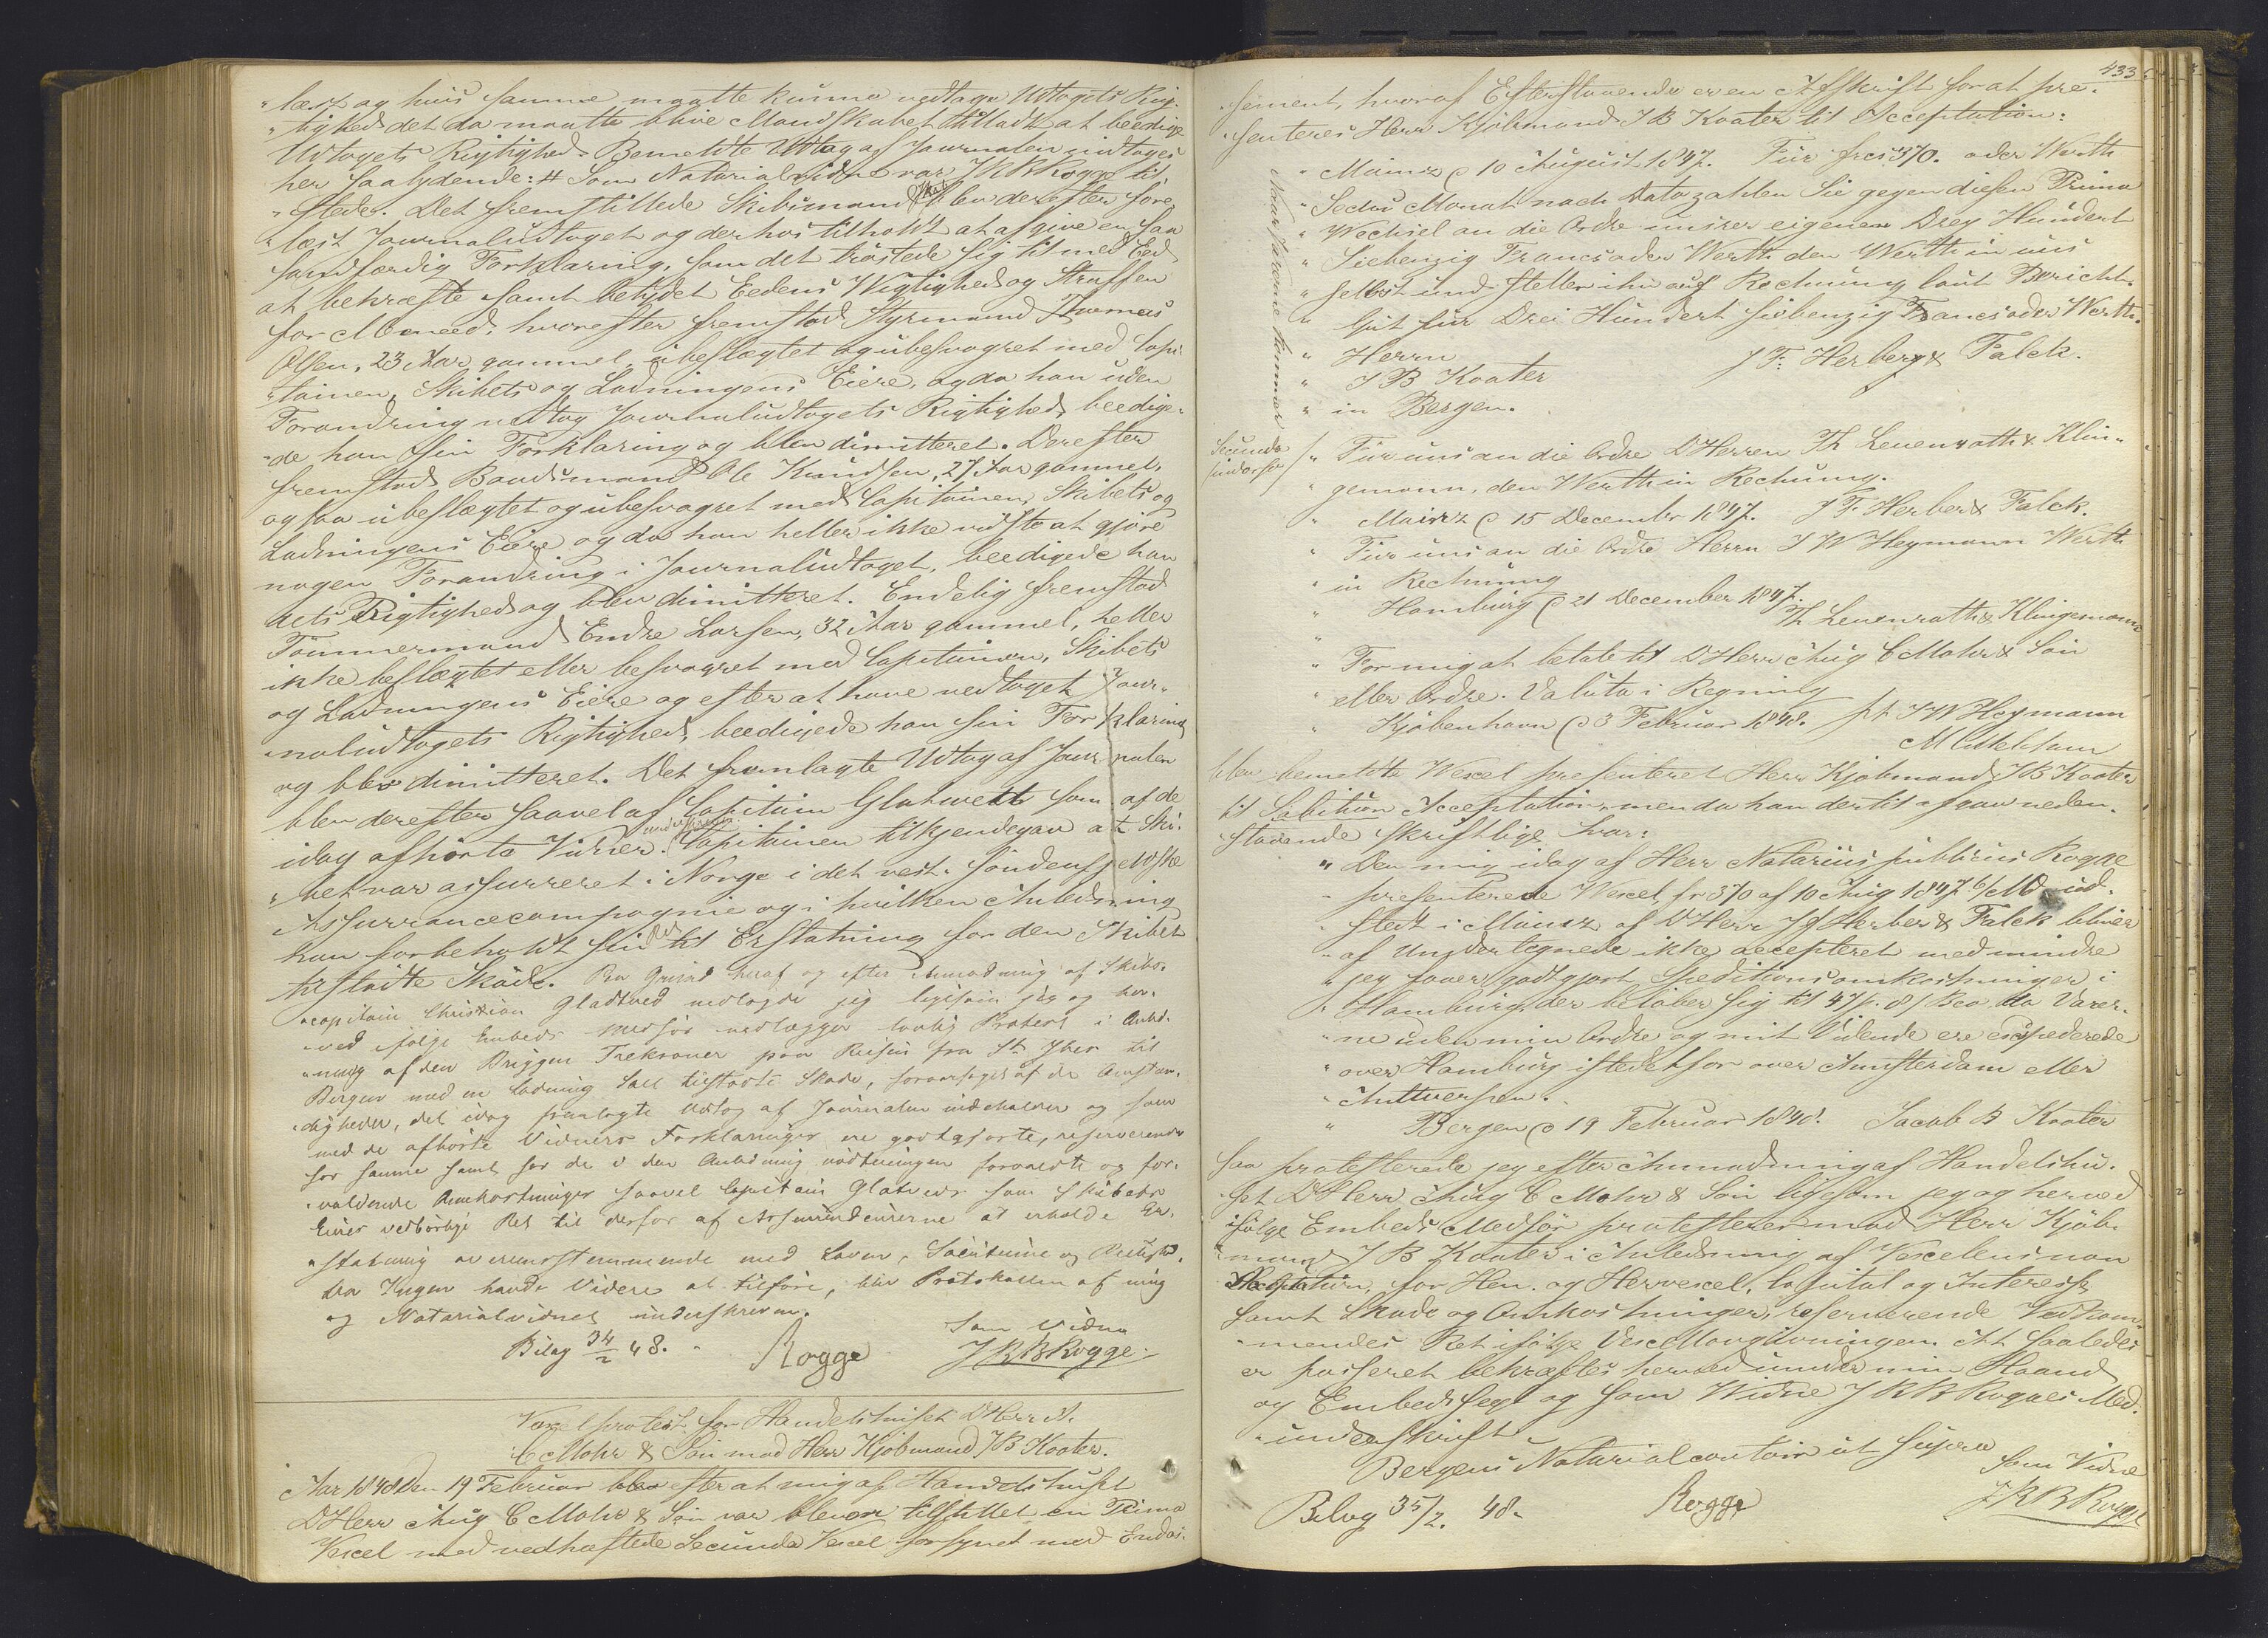 "læst og hvis samme maatte kunne vedtage Udtogets Rig-
"tighed det da maatte blive Mandskabet tilladt at beedige
Udtogets Rigtighed. Bemeldte Udtog af Journalen indtages
her saalydende: # Som Notarialvidne var J R B Rogge til-
"stede. Det fremstillede Skibsmandskab blev derefter fore-
"læst Journaludtoget og derhos tilholdt at afgive en saa
sandfærdig Forklaring, som det trøstede sig til med Eed
at bekræfte samt betydet Eedens Vigtighed og Straffen
for Meneed. hvorefter fremstod Styrmand Thomas
Olsen, 23 Aar gammel, ubeslægtet og ubesvogret med Capi-
"tainen, Skibets og Ladningens Eiere, og da han uden
Forandring vedtog Journaludtogets Rigtighed, beedige-
"de han sin Forklaring og blev dimitteret. Derefter
fremstod Baadsmand Ole Knudsen, 27 Aar gammel,
ogsaa ubeslægtet og ubesvogret med Capitainen, Skibets og
Ladningens Eiere og da han heller ikke vidste at gjøre
nogen Forandring i Journaludtoget, beedigede han
dets Rigtighed og blev dimitteret. Endelig fremstod
Tømmermand Endre Larsen, 32 Aar gammel, heller
ikke beslægtet eller besvogret med Capitainen, Skibets
og Ladningens Eiere og efter at have vedtaget Jour-
"naludtogets Rigtighed, beedigede han sin Forklaring
og blev dimitteret. Det fremlagte Udtog af Journalen
blev derefter saavel af Capitain Glatved som af de
idag afhørte Vidner underskreven. Capitainen tilkjendegav at Ski-
"bet var assurreret i Norge i det vest- søndenfjeldske
Assurrancecompagnie og i hvilken Anledning
han forbeholdt sin Ret til Erstatning for den Skibet
tilstødte Skade. Paa Grund heraf og efter Anmodning af Skibs-
"capitain Christian Gladtved nedlagde jeg ligesom jeg og her-
"ved ifølge Embeds Medfør nedlægger lovlig Protest i Anled-
"ning af den Briggen Trekroner paa Reisen fra St Ybes til
Bergen med en Ladning Salt tilstødte Skade, foraarsaget af de Omstæn-
"digheder, det idag fremlagte Udtog af Journalen indeholder og som
med de afhørte Vidners Forklaringer ere godtgjorte, reserverende
for samme samt for de i den Anledning nødtvungen foranledte og for-
"voldende Omkostninger saavel Capitain Glatved som Skibets
Eiere vedbørlig Ret til derfor af Assurandeurerne at erholde Er-
"statning overensstemmende med Loven, Sædvane og Billighed.
Da Ingen havde Videre at tilføre, blev Protokollen af mig
og Notarialvidnet underskreven.
Som Vidne
Bilag 34/2 48. Rogge J R B Rogge.
Vexelprotest for Handelshuset DHerr A.
C Mohr & Søn mod Herr Kjøbmand J B Kooter.
Aar 1848 den 19 Februar blev efterat mig af Handelshuset
DHerr Aug C Mohr & Søn var bleven tilstillet en Prima
Vexel med vedhæftede Secunda Vexel forsynet med Endos-
433
"sement, hvoraf Efterstaaende er en Afskrift for at præ-
"senteres Herr Kjøbmand J B Kooter til Acceptation:
" Mainz d 10 August 1847. Für frcs 370. oder Werth
" Sechs Monat nach Dato zahlen Sie gegen diesen Prima
" Wechsel an die Ordre unsrer eigenen Drey Hundert
" Siebenzig Francs oder Werth den Werth in uns
" selbst und stellen ihn auf Rechnung laut Bericht.
" Gut für Drei Hundert siebenzig Francs oder Werth.
" Herrn J F. Herber & Falck.
" J B Kooter
" in Bergen.
Secunda
" Für uns an die Ordre DHerren Th Leuenrath & Klin-
" gemann, den Werth in Rechnung.
" Mainz d 15 December 1847. J F. Herber & Falck.
" Für uns an die Ordre Herrn J W Heymann Werth
" in Rechnung
" Hamburg d 21 December 1847.
" Th Leuenrath & Klingemann
" For mig at betale til DHerr Aug C Mohr & Søn
" eller Ordre. Valuta i Regning
" Kjøbenhavn d 3 Februar 1848. J W Heymann
blev bemeldte Vexel presenteret Herr Kjøbmand J B Kooter
til Acceptation, men da han dertil afgav neden-
staaende skriftlige Svar:
" Den mig idag af Herr Notarius publicus Rogge
" presenterede Vexel fr 370 af 10 Aug 1847 6/Md ud-
" stedt i Mainz af DHerr J F Herber & Falck bliver
" af Undertegnede ikke accepteret medmindre
" jeg faaer godtgjort Speditionsomkostninger i
" Hamburg der beløber sig til 47 Bco da Varer-
" ne uden min Ordre og mit Vidende ere expederede
" over Hamburg istedetfor over Amsterdam eller
" Antwerpen.
" Bergen d 19 Februar 1848. Jacob B Kooter
saa protesterede jeg efter Anmodning af Handelshu-
set DHerr Aug C Mohr & Søn ligesom jeg og herved
ifølge Embeds Medfør protesterer mod Herr Kjøb-
"mand J B Kooter i Anledning af Vexelens non
Acceptation, for Hen- og Hervexel, Capital og Interesse
samt Skade og Omkostninger, reserverende Vedkom-
"mendes Ret ifølge Vexellovgivningen. At saaledes
er passeret bekræftes herved under min Haand
og Embedssegl og som Vidne J R B Rogges Med-
"underskrift.
Bergens Notarialcontoir ut supra
Som Vidne
Bilag 35/2. 48. Rogge J R B Rogge